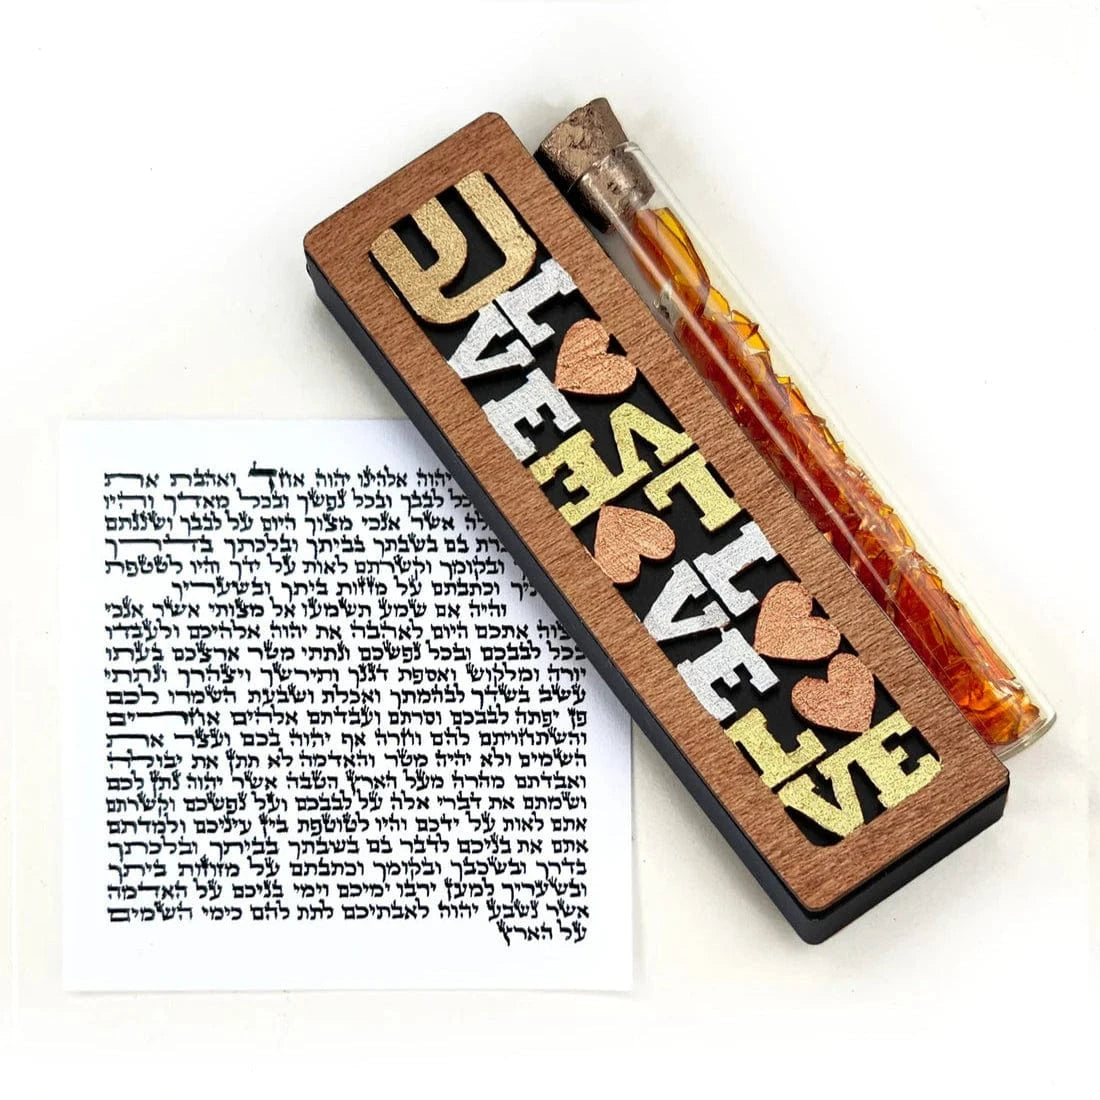 ש
L
VE
LVE
L
VE
L
VE
יהוה אלהינו יהוה אחד ואהבת את
לבבך ובכל נפשך ובכל מאדך והיו
אשר אנכי מצוך היום על לבבך ושננתם
בם בשבתך בביתך ובלכתך בדרך
ובקומך וקשרתם לאות על ידך והיו לטטפת
וכתבתם על מזזות ביתך ובשעריך
והיה אם שמע תשמעו אל מצותי אשר אנכי
אתכם היום לאהבה את יהוה אלהיכם ולעבדו
בכל לבבכם ובכל נפשכם ונתתי מטר ארצכם בעתו
יורה ומלקוש ואספת דגנך ותירשך ויצהרך ונתתי
עשב בשדך לבהמתך ואכלת ושבעת השמרו לכם
פן יפתה לבבכם וסרתם ועבדתם אלהים אחרים
והשתחויתם להם וחרה אף יהוה בכם ועצר את
השמים ולא יהיה מטר והאדמה לא תתן את יבולה
ואבדתם מהרה מעל הארץ הטבה אשר יהוה נתן לכם
ושמתם את דברי אלה על לבבכם ועל נפשכם וקשרתם
אתם לאות על ידכם והיו לטוטפת בין עיניכם ולמדתם
אתם את בניכם לדבר בם בשבתך בביתך ובלכתך
בדרך ובשכבך ובקומך וכתבתם על מזוזות ביתך
ובשעריך למען ירבו ימיכם וימי בניכם על האדמה
אשר נשבע יהוה לאבתיכם לתת להם כימי השמים
על הארץ